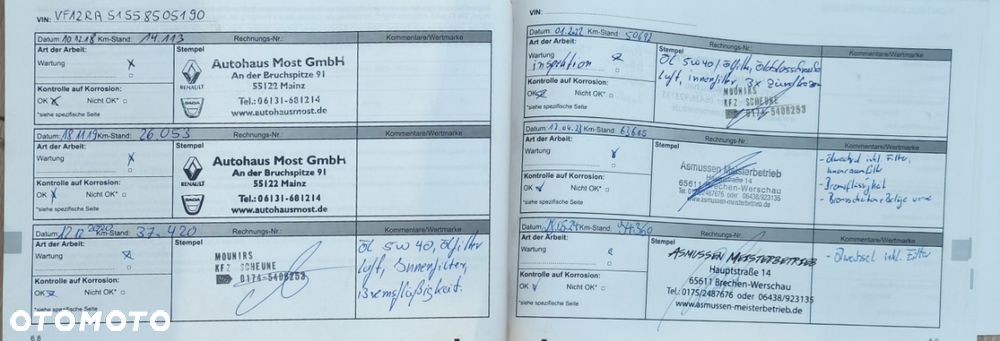 VIN: VF12RA51558505190
Datum: 10.12.18 Km-Stand: 14.113 Rechnungs-Nr.: Kommentare/Wertmarke
Art der Arbeit: Stempel
Wartung X
Autohaus Most GmbH
An der Bruchspitze 91
55122 Mainz
Tel.: 06131-681214
www.autohausmost.de
RENAULT
DACIA
Kontrolle auf Korrosion:
OK X Nicht OK* □
*siehe spezifische Seite
Datum: 18.11.19 Km-Stand: 26.053 Rechnungs-Nr.: Kommentare/Wertmarke
Art der Arbeit: Stempel
Wartung X
Autohaus Most GmbH
An der Bruchspitze 91
55122 Mainz
Tel.: 06131-681214
www.autohausmost.de
RENAULT
DACIA
Kontrolle auf Korrosion:
OK X Nicht OK* □
*siehe spezifische Seite
Km-Stand: 37-420 Rechnungs-Nr.: Kommentare/Wertmarke
Art der Arbeit: Stempel
Wartung
MOUNIRS
KFZ SCHEUNE
0174-5406253
Öl 5W40, Ölfilter
Luft, Innenfilter,
Bremsflüßigkeit.
Kontrolle auf Korrosion:
OK Nicht OK* □
*siehe spezifische Seite
68
VIN:
Datum: 01.2022 Km-Stand: 50692 Rechnungs-Nr.: Kommentare/Wertmarke
Art der Arbeit: Stempel
Wartung
inspektion
Öl 5W40, Ölfilter,
Luft, innenfilter, 3x
MOUNIRS
KFZ SCHEUNE
0174-5406253
Kontrolle auf Korrosion:
OK Nicht OK* □
*siehe spezifische Seite
Datum: 04.23 Km-Stand: 63605 Rechnungs-Nr.: Kommentare/Wertmarke
Art der Arbeit: Stempel
Wartung
Asmussen Meisterbetrieb
Hauptstraße 14
65611 Brechen-Werschau
Tel.: 0175/2487676 oder 06438/923135
www.asmussen-meisterbetrieb.de
- Ölwechsel inkl. Filter,
Innenraumfilter
- Bremsflüssigkeit
- Bremsscheiben + Beläge
Kontrolle auf Korrosion:
OK Nicht OK* □
*siehe spezifische Seite
Datum: Km-Stand: Rechnungs-Nr.: Kommentare/Wertmarke
Art der Arbeit: Stempel
Wartung
ASMUSSEN MEISTERBETRIEB
Hauptstraße 14
65611 Brechen-Werschau
Tel.: 0175/2487676 oder 06438/923135
www.asmussen-meisterbetrieb.de
- Ölwechsel inkl. Filter
Kontrolle auf Korrosion:
OK Nicht OK* □
*siehe spezifische Seite
OTOMOTO